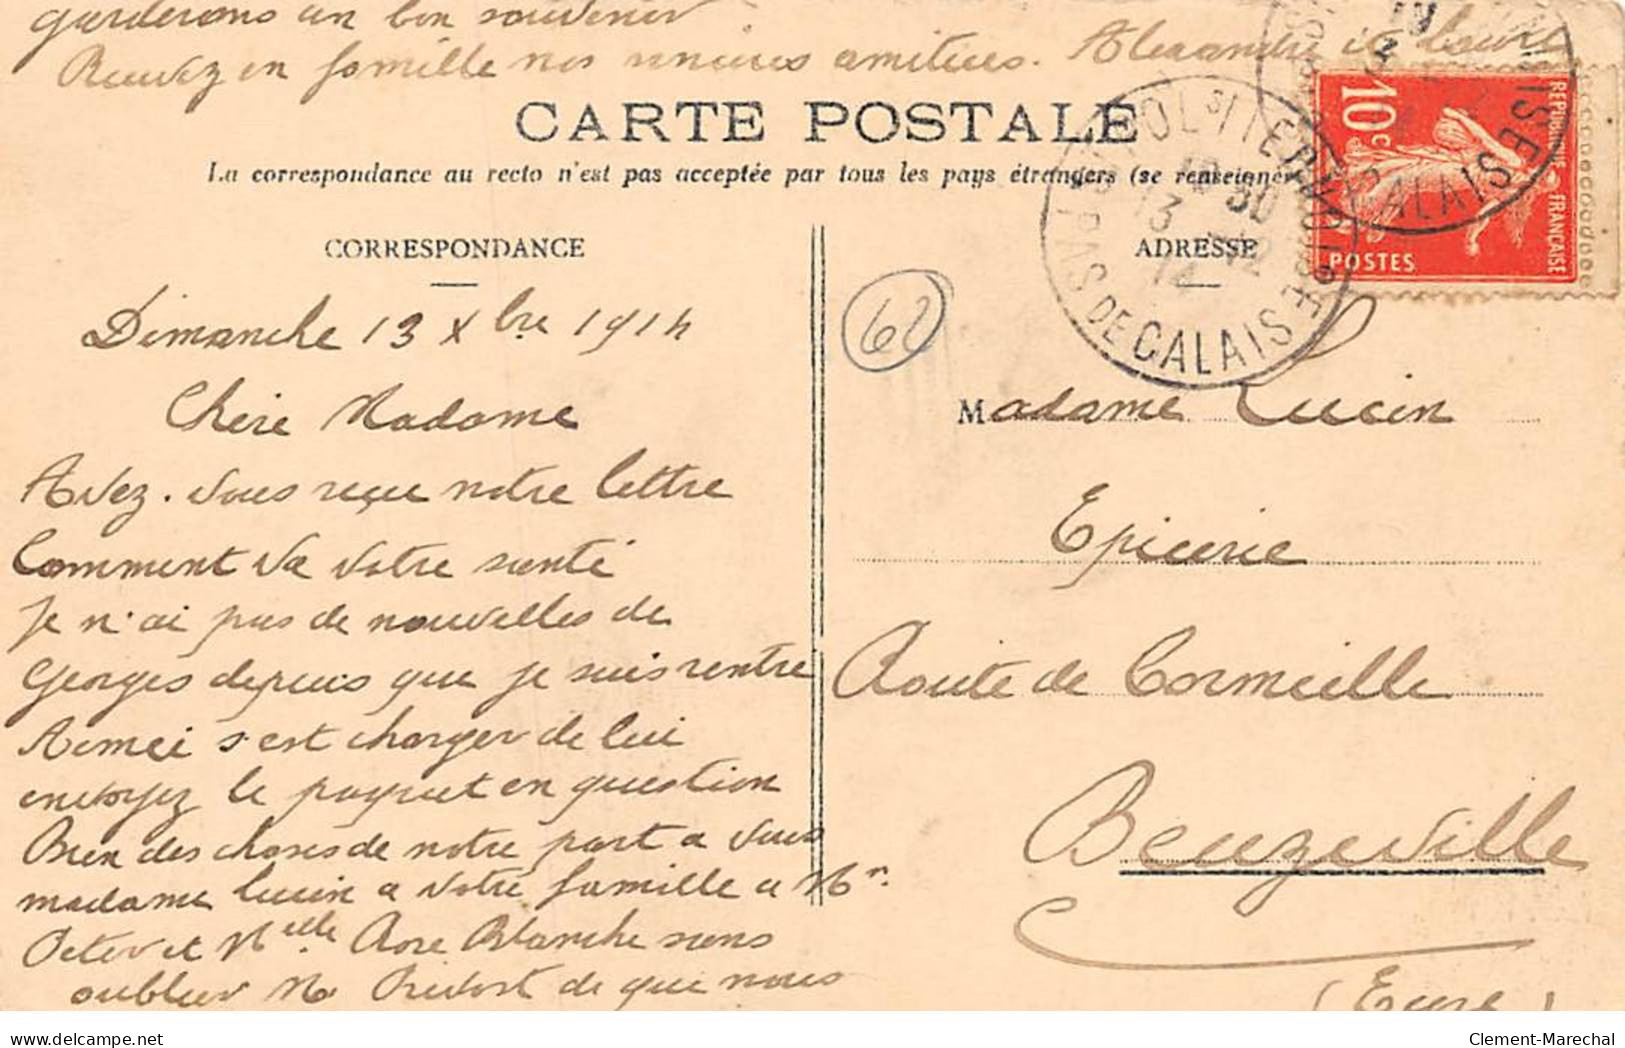 garderons un bon souvenir.
Recevez en famille nos sincères amitiées. Alexandre et Louise
CARTE POSTALE
La correspondance au recto n'est pas acceptée par tous les pays étrangers (se renseigner
CORRESPONDANCE
Dimanche 13 Xbre 1914
Chère Madame
Avez-vous reçue notre lettre
Comment va votre santé
Je n'ai pas de nouvelles de
Georges depuis que je suis rentré
Aimée s'est charger de lui
envoyez le paquet en question
Bien des choses de notre part a vous
madame Lucin a votre famille a Mr.
Peter et Melle Rose Blanche sans
oublier M. Prevost de que nous
62
ADRESSE
Madame Lucin
Epicerie
Route de Cormeille
Beuzeville
(Eure)
10c
REPUBLIQUE FRANÇAISE
POSTES
ST POL S/TERNOISE
13 12
14
PAS DE CALAIS
CALAIS
Delcampe.net
Clement-Marechal